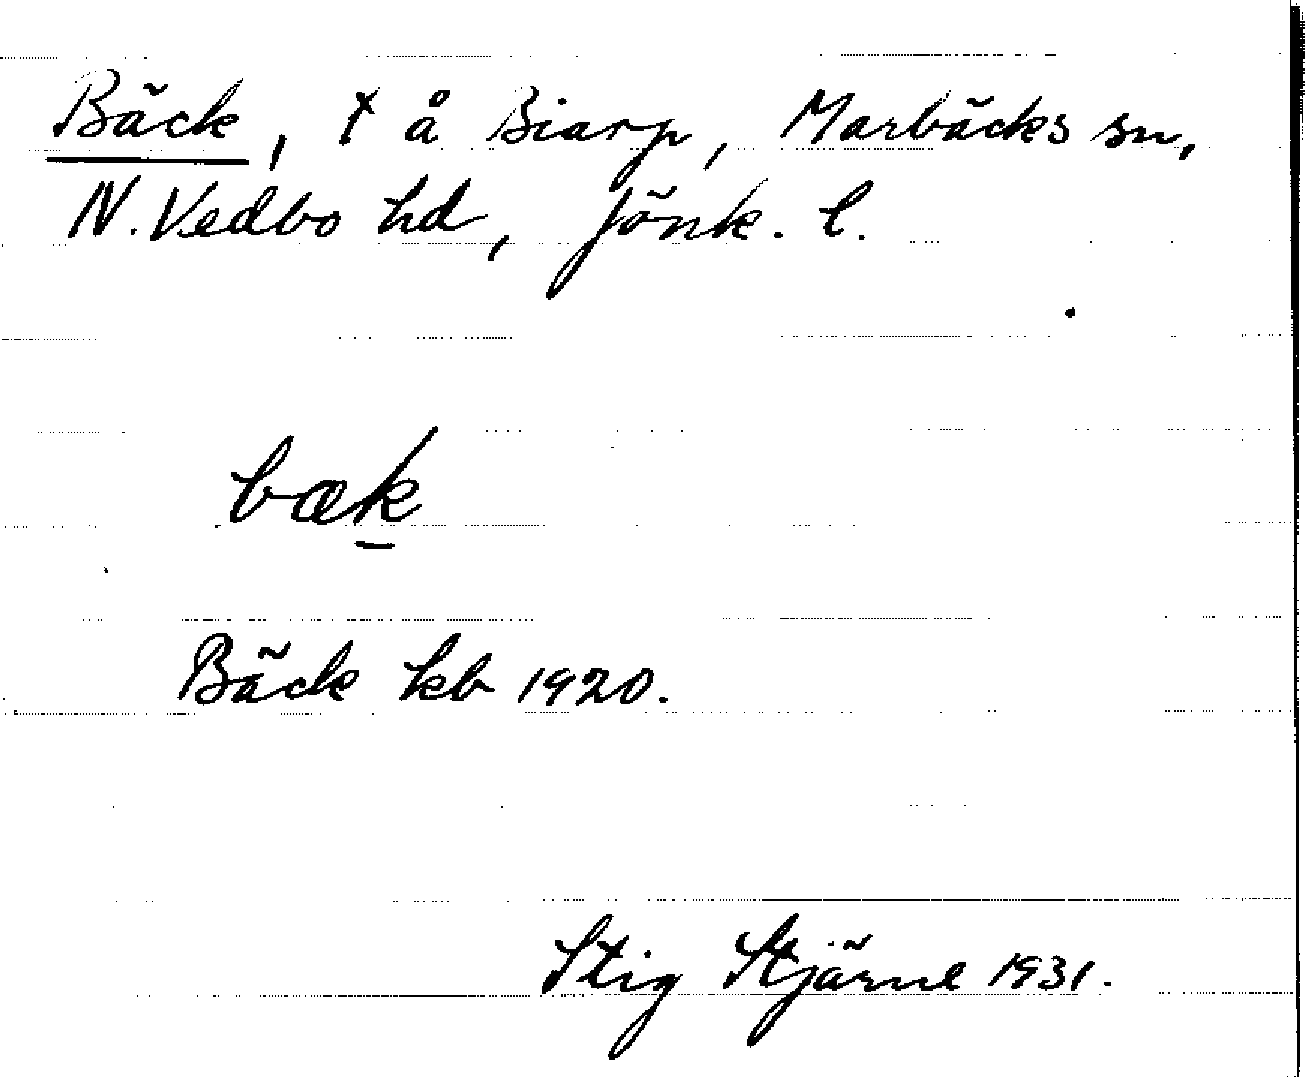 Bäck, t å Biarp, Marbäcks sn,
N. Vedbo hd, Jönk. l.
bæk
Bäck kb 1920.
Stig Stjärne 1931.